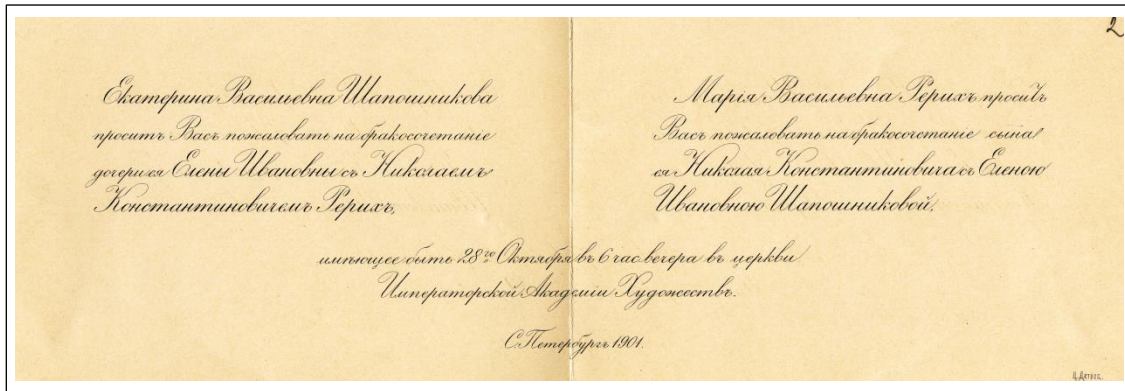 2
Екатерина Васильевна Шапошникова
проситъ Васъ пожаловать на бракосочетаніе
дочери ея Елены Ивановны съ Николаемъ
Константиновичемъ Рерихъ,
Марія Васильевна Рерихъ проситъ
Васъ пожаловать на бракосочетаніе сына
ея Николая Константиновича съ Еленою
Ивановною Шапошниковой,
имѣющее быть 28го Октября въ 6 час. вечера въ церкви
Императорской Академіи Художествъ.
С.Петербургъ 1901.